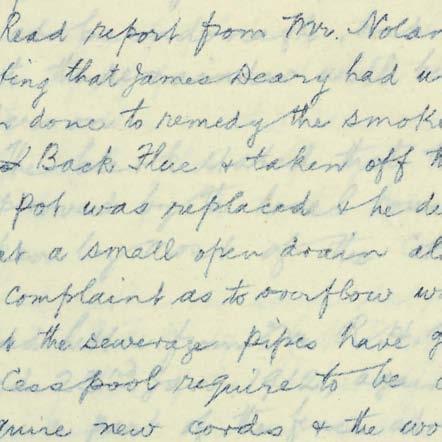 Read report from Mr. Nolan
ting that James Deary had
done to remedy the smoke
Back Flue & taken off
Pot was replaced & he
at a small open drain
complaint as to overflow
the sewerage pipes have
cesspool require to be
quire new cords & the